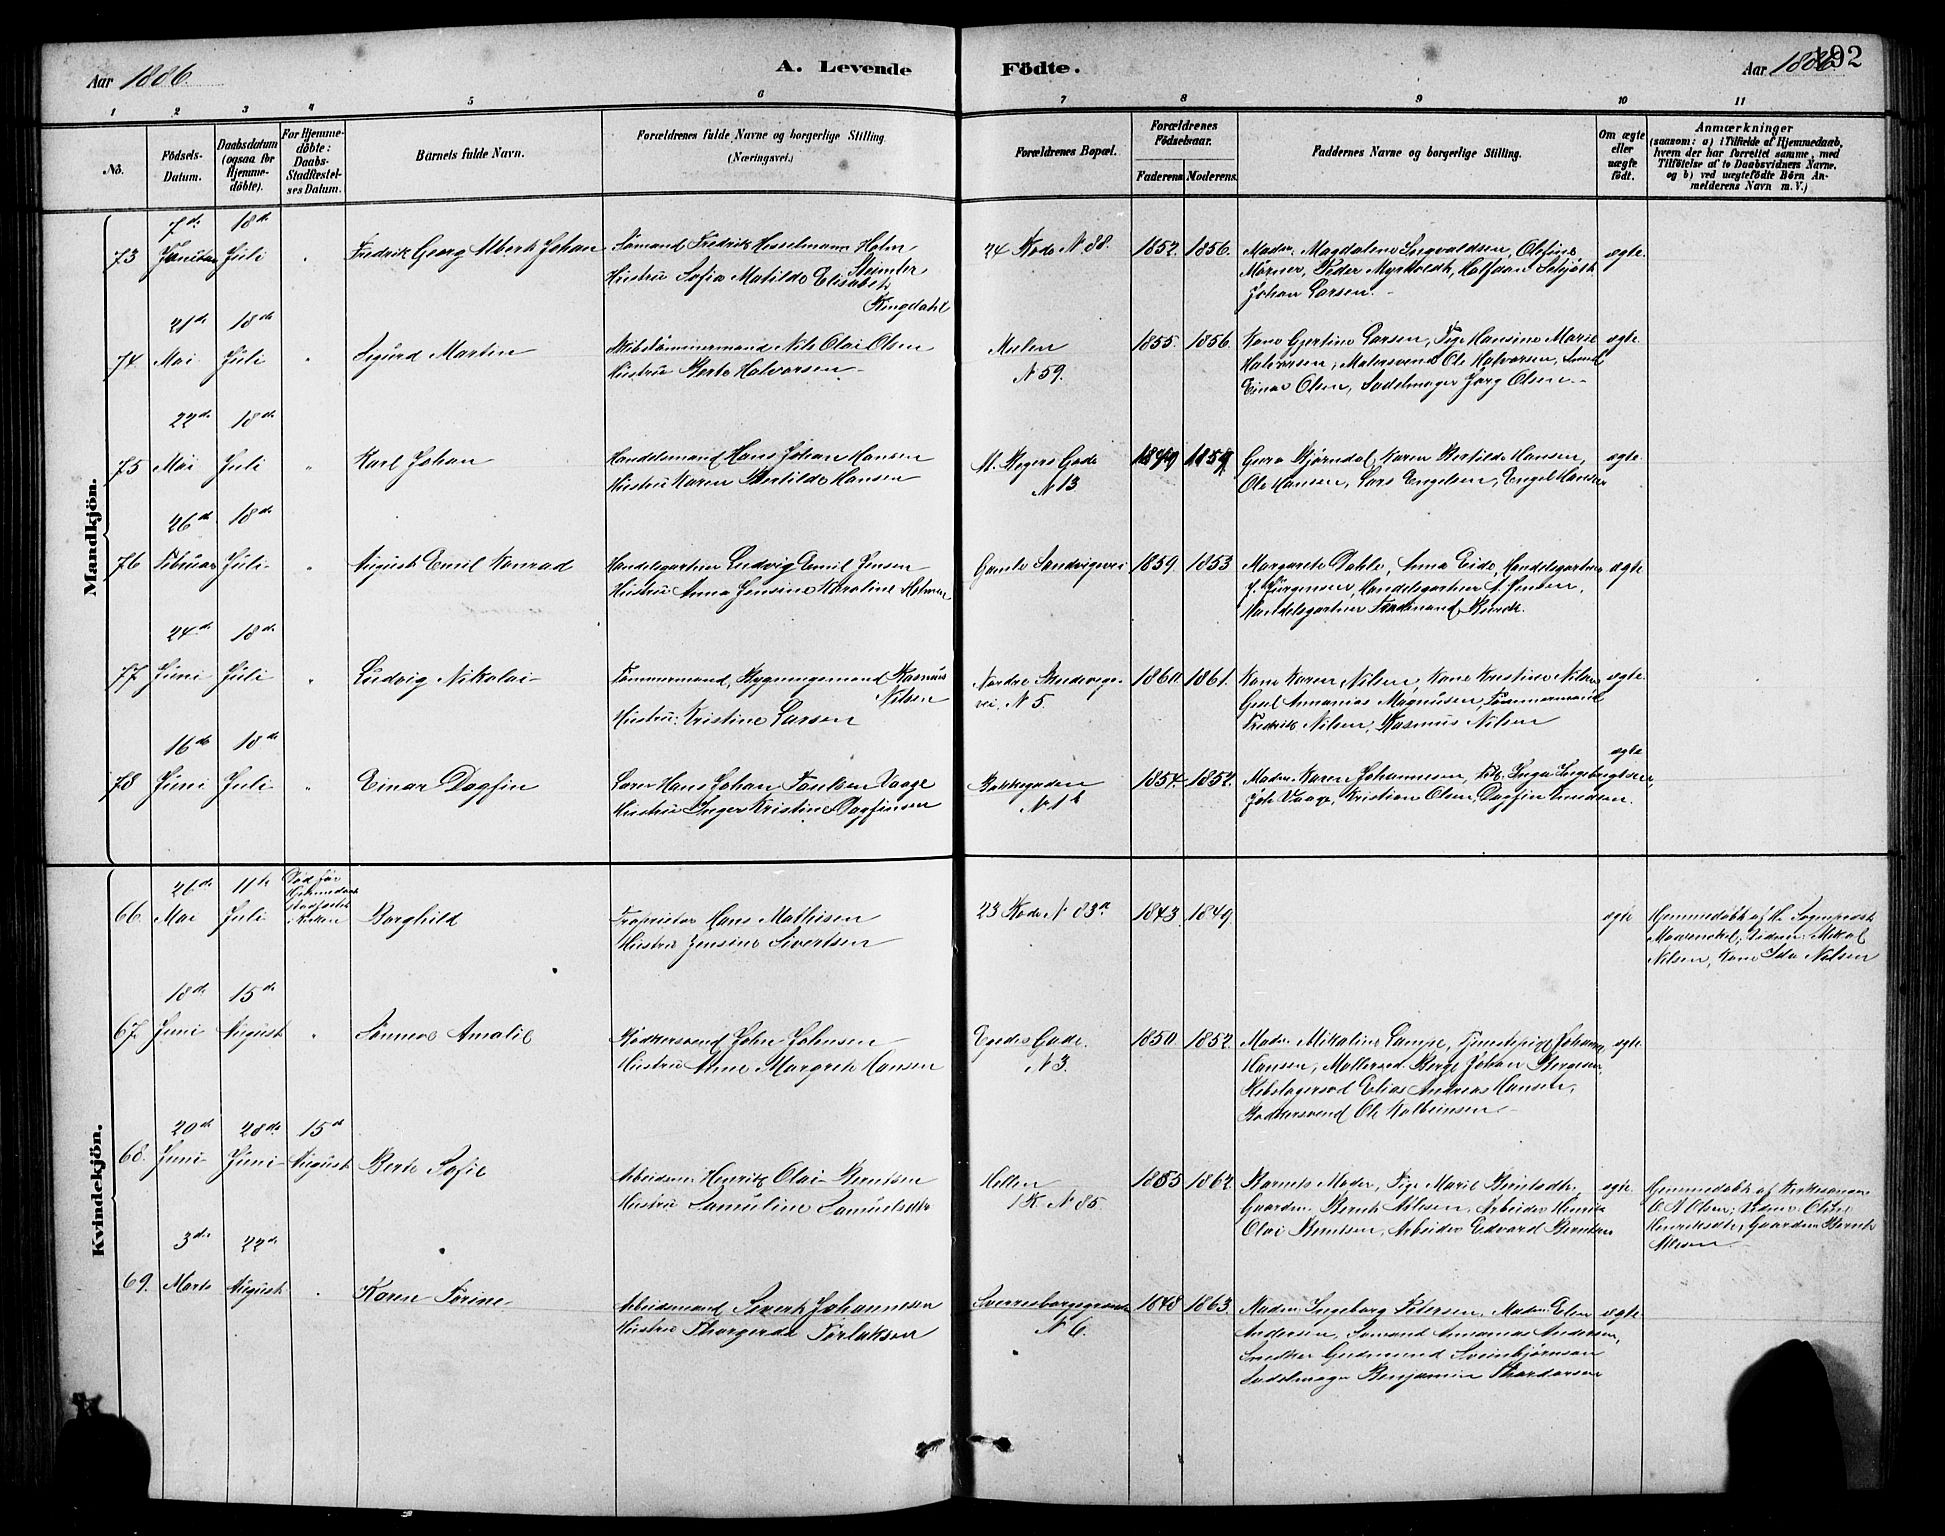 Aar 1886.
A. Levende Födte.
Aar 1886.
192
1 2 3 4 5 6 7 8 9 10 11
No.
Födsels-Datum.
Daabsdatum (ogsaa for Hjemme-döbte).
For Hjemme-döbte: Daabs-Stadfæstel-ses Datum.
Barnets fulde Navn.
Forældrenes fulde Navne og borgerlige Stilling. (Næringsvei.)
Forældrenes Bopæl.
Forældrenes Födselsaar.
Faderens Moderens.
Faddernes Navne og borgerlige Stilling.
Om ægte eller uægte födt.
Anmærkninger
(saasom: a) i Tilfælde af Hjemmedaab, hvem der har forrettet samme, med Tilföielse af to Daabsvidners Navne, og b) ved uægtefödte Börn Anmelderens Navn m. V.)
Mandkjön.
73 7de Januar 18de Juli " Fredrik Georg Albert Johan
Sömand Fredrik Hesselmann Holm
Hustru Sofia Matilde Elisabeth
Ringdahl
24 Rode N 88. 1852. 1856.
Mad. Magdalene Ingvaldsen, Olefine
Mörner, Peder Myrholdt, Halfdan
Johan Larsen. ægte.
74 21de Mai 18de Juli " Sigurd Martin
Skibstömmermand Nils Olai Olsen
Hustru Berte Halvorsen
Mulen
N 59. 1855. 1856.
Kone Gjertine Larsen, Pige Hansine Marie
Halvorsen, Malersvend Ole Halvorsen,
Einar Olsen, Sadelmager Jörg Olsen ægte.
75 22de Mai 18de Juli " Karl Johan
Handelsmand Hans Johan Hansen
Hustru Karen Bertilde Hansen
M. Krogers Gade
N 13 1849 1859
Gura Bjørndal, Karen Bertilde Hansen,
Ole Hansen, Lars Engelsen, Engel Hansen ægte.
76 26de Februar 18de Juli " August Emil Konrad
Handelsgartner Ludvig Emil Jensen
Hustru Anna Jensine Karoline Holmen
Gamle Sandvigsvei 1859. 1853
Margarete Dahle, Anna Eide, Handelsgartner
J. Jörgensen, Handelsgartner A. Jensen,
Handelsgartner Ferdinand ægte
77 24de Juni 18de Juli " Ludvig Nikolai
Tömmermand, Bygningsmand Rasmus
Nilsen
Hustru: Kristine Larsen
Nordre Skudevigs-
vei. N 5. 1860. 1861.
Kone Karen Nilsen, Kone Kristine Nilsen
Gesel Ananias Magnusen, Tömmermand
Fredrik Nilsen, Rasmus Nilsen ægte.
78 16de Juni 18de Juli " Einar Dagfin
Lærer Hans Johan Paulsen Vaage
Hustru Inger Kristine Dagfinsen
Bakkegaden
N. 1 b 1854. 1852.
Madm. Karen Johannesen, Frk. Inga Ingebrigtsen,
Joh. Vaage, Kristian Olsen, Dagfin Knudsen. ægte
Kvindekjön.
66 26de Mai 11te Juli Borghild
Proprietær Hans Mathisen
Hustru Jensine Sivertsen
23 Rode N 83a 1843. 1849 ægte
Hjemmedøbt af Hr. Sogneprest
Nilsen, Kone Ida Nilsen
67. 18de Juni 15de August " Amalie
Bødkersvend John Johnsen
Hustru Anne Margrete Hansen
Egedes Gade.
N 3. 1850. 1852.
Madm. Mikaline Lampe, Tjenestepige Johanne
Hansen, Børge Johan Børgesen,
Rebslagersvd Elias Andreas Hansen,
Bødkersvend Ole Kolbeinsen ægte.
68. 20de Juni 28de Juni 15de August Berte Sofie
Arbeidsm. Henrik Olai Berntsen
Hustru Samuline Samuelsdtr
Hellen
1 R. N 85. 1855 1862.
Barnets Moder, Pige Marie
Gaardm. Bernt Nilsen, Arbeider Henrik
Olai Berntsen, Arbeider Edvard Berntsen ægte.
Hjemmedøbt af
O. A. Olsen;
Henriksdtr, Gaardm. Bernt
Nilsen
69. 3de Marts 22de August " Karen Torine
Arbeidsmand Sivert Johannesen
Hustru Thorgerda Torlaksen
Sverresborgsgaden
N 6. 1848 1863.
Madm. Ingeborg Petersen, Madm. Elen
Andersen, Sømand Annanias Andersen,
Snedker Gudmund Sveinbjørnson
Sadelmager Benjamin Thordarsen ægte